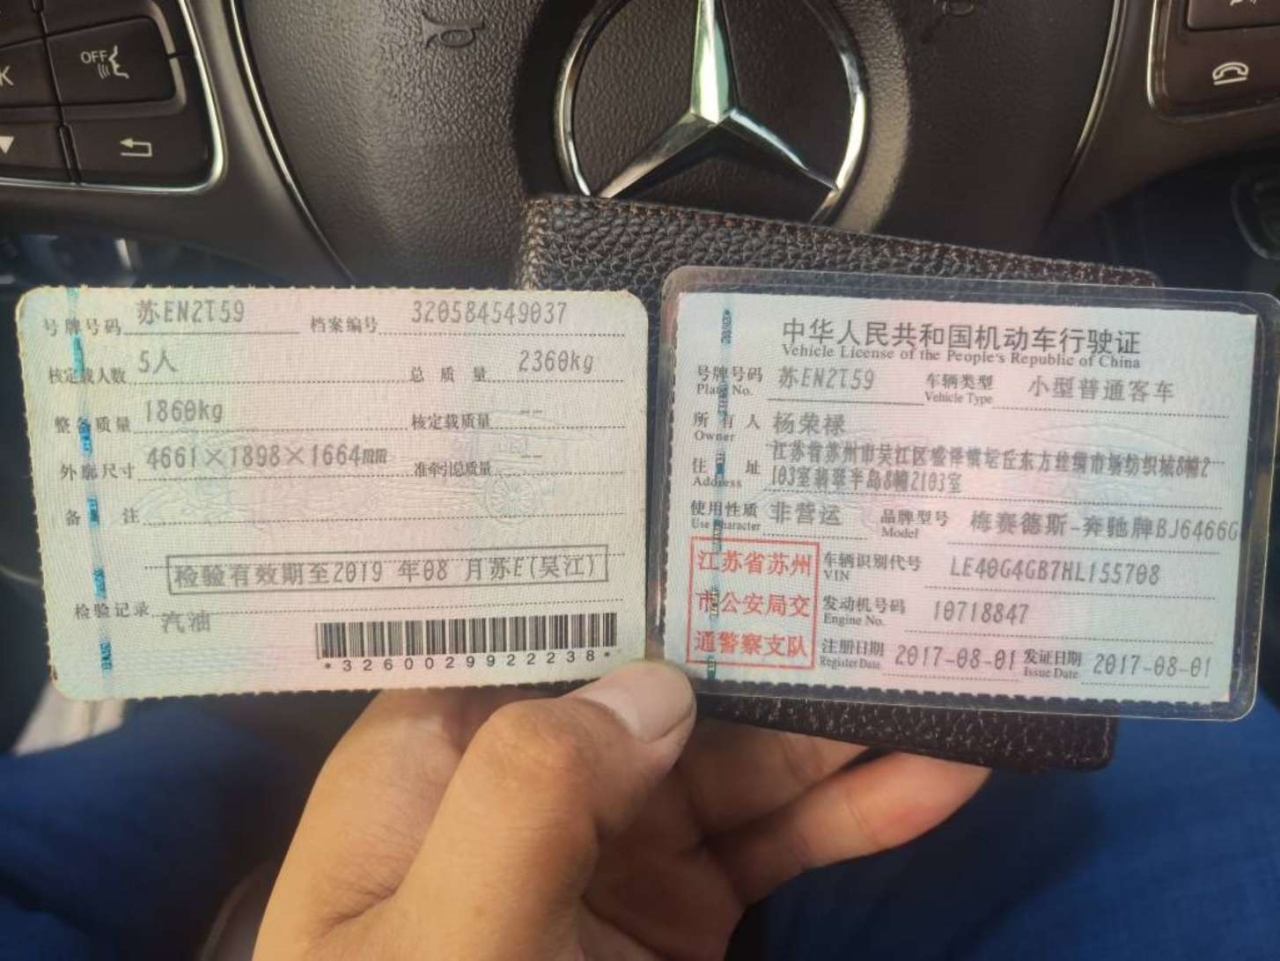 OFF
K
号牌号码 苏EN2T59 档案编号 320584549037
核定载人数 5人 总质量 2360kg
整备质量 1860kg 核定载质量 --
外廓尺寸 4661×1898×1664mm 准牵引总质量 --
备注
检验有效期至2019 年08 月苏E(吴江)
检验记录
汽油
*3260029922238*
中华人民共和国机动车行驶证
Vehicle License of the People's Republic of China
号牌号码 苏EN2T59 车辆类型 小型普通客车
Plate No. Vehicle Type
所有人 杨荣禄
Owner
住址 江苏省苏州市吴江区盛泽镇坛丘东方丝绸市场纺织城8幢2
Address 103室翡翠半岛8幢2103室
使用性质 非营运 品牌型号 梅赛德斯-奔驰牌BJ6466G
Use Character Model
江苏省苏州
市公安局交
通警察支队
车辆识别代号 LE40G4GB7HL155708
VIN
发动机号码 10718847
Engine No.
注册日期 2017-08-01 发证日期 2017-08-01
Register Date Issue Date